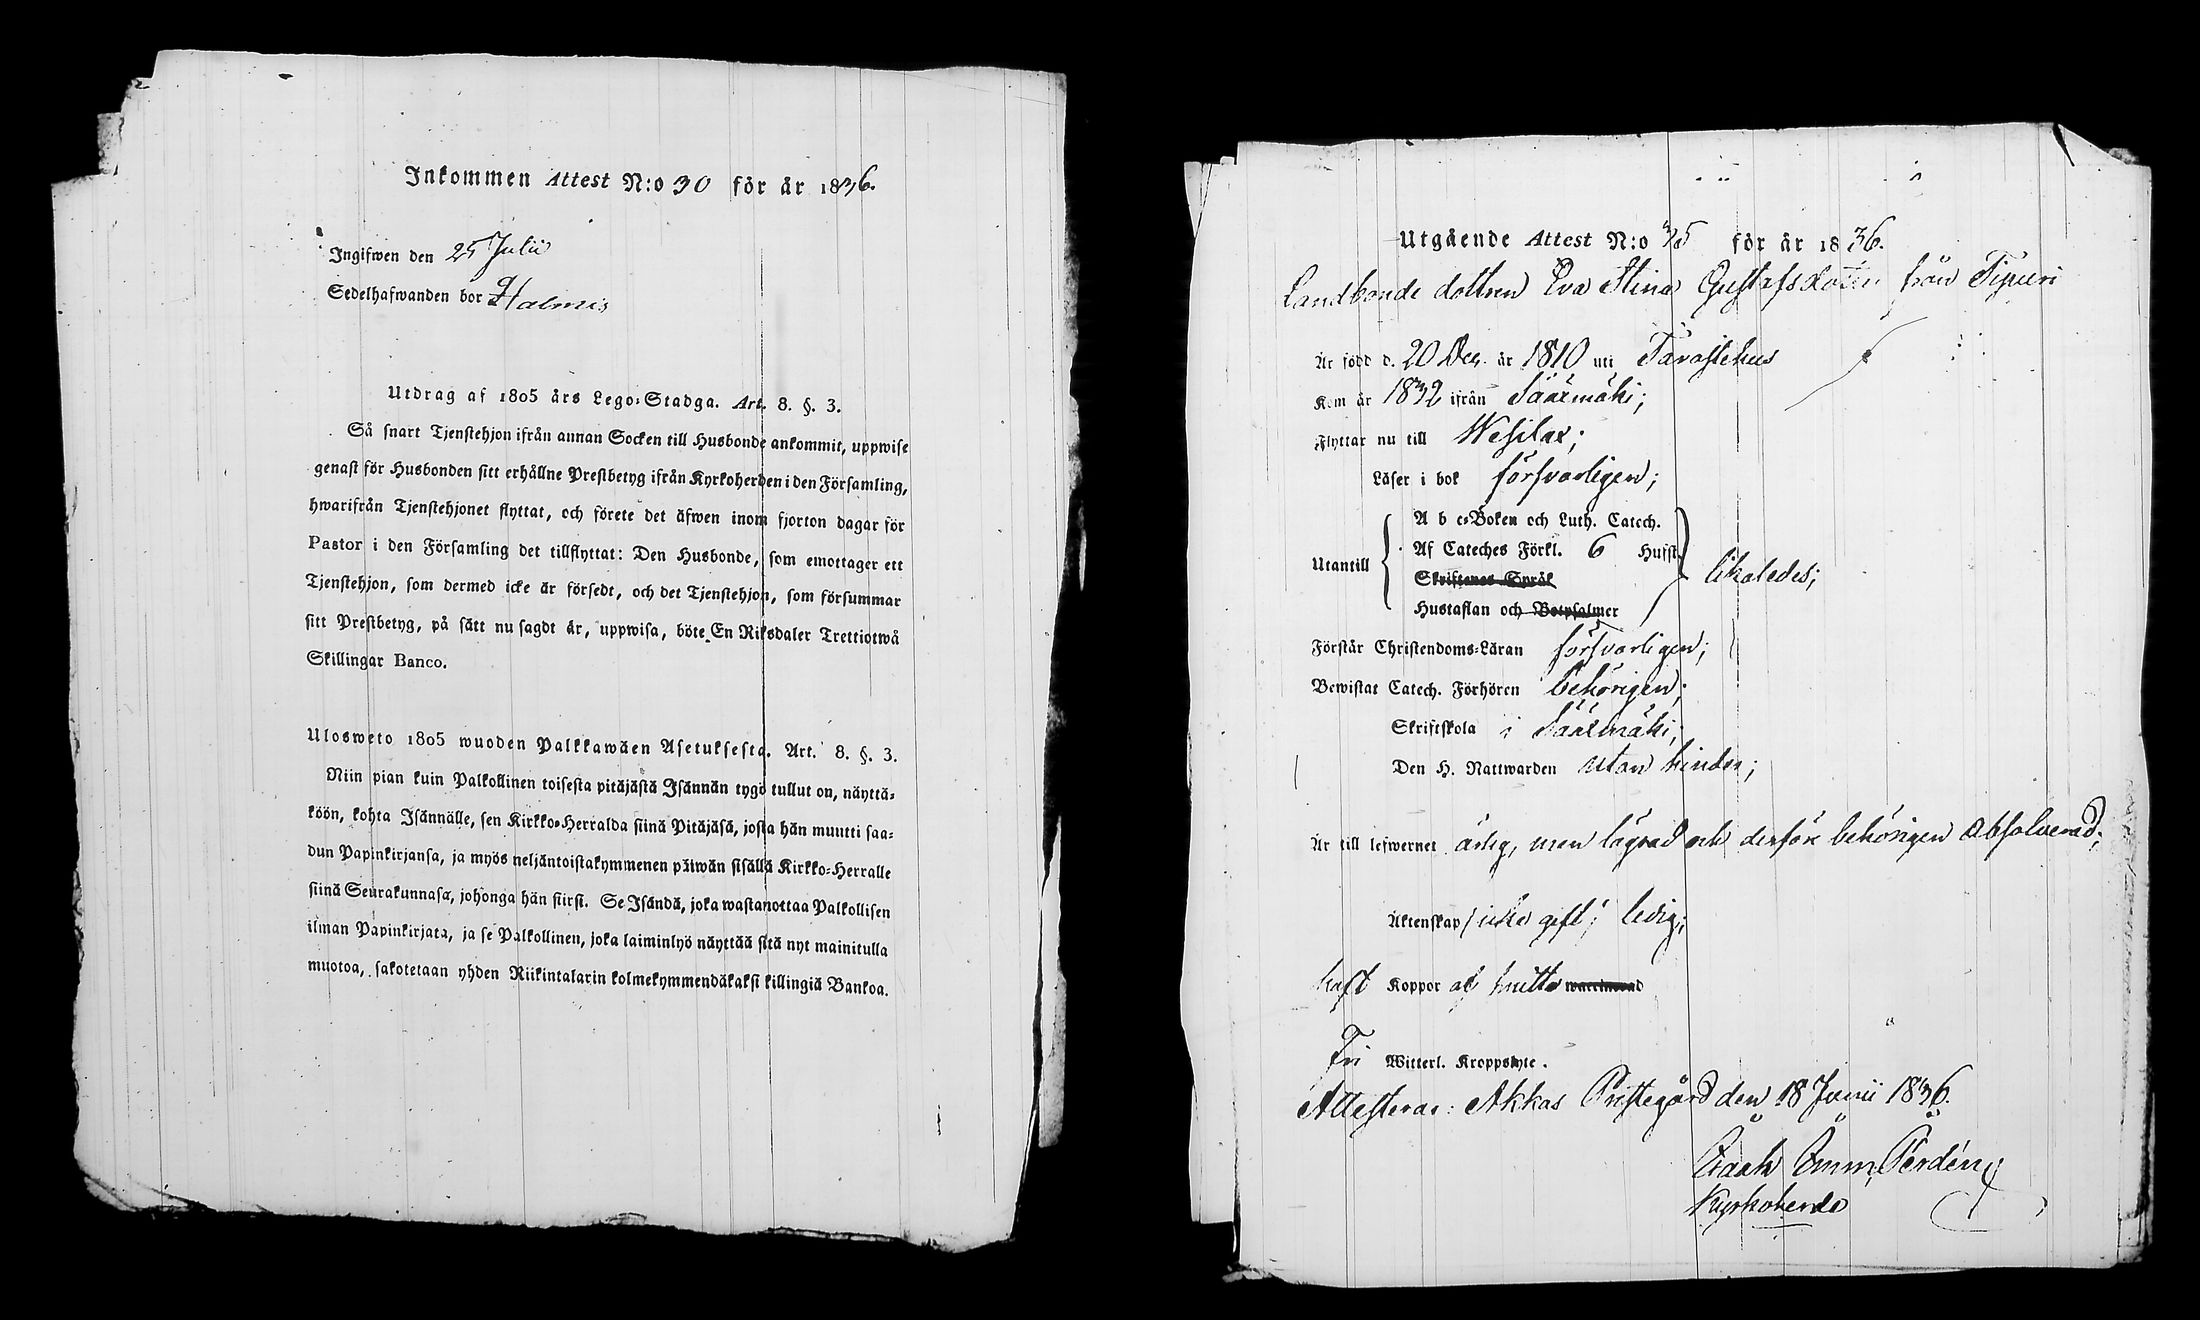 Inkommen Attest N:o 30 för år 1836.
Ingifwen den 25 Julii
Sedelhafwanden bor Halmis
Utdrag af 1805 års Lego-Stadga. Art. 8. §. 3.
Så snart Tjenstehjon ifrån annan Socken till Husbonde ankommit, uppwise
genast för Husbonden sitt erhållne Prestbetyg ifrån Kyrkoherden i den Församling,
hwarifrån Tjenstehjonet flyttat, och förete det äfwen inom fjorton dagar för
Pastor i den Församling det tillflyttat: Den Husbonde, som emottager ett
Tjenstehjon, som dermed icke är försedt, och det Tjenstehjon, som försummar
sitt Prestbetyg, på sätt nu sagdt är, uppwisa, böte En Riksdaler Trettiotwå
Skillingar Banco.
Ulosweto 1805 wuoden Palkkawäen Asetuksesta. Art. 8. §. 3.
Niin pian kuin Palkollinen toisesta pitäjästä Isännän tygö tullut on, näyttä-
köön, kohta Isännälle, sen Kirkko-Herralda siinä Pitäjäsä, josta hän muutti saa-
dun Papinkirjansa, ja myös neljäntoistakymmenen päiwän sisällä Kirkko-Herralle
siinä Seurakunnasa, johonga hän siirsi. Se Isändä, joka wastanottaa Palkollisen
ilman Papinkirjata, ja se Palkollinen, joka laiminlyö näyttää sitä nyt mainitulla
muotoa, sakotetaan yhden Riikintalarin kolmekymmendäkaksi killingiä Bankoa.
Utgående Attest N:o 35 för år 1836.
Landbonde dottren Eva Stina Gustafsdotter från Tipuri
Är född d. 20 Dec. år 1810 uti Tavastehus
Kom år 1832 ifrån Sääxmäki;
Flyttar nu till Wesilax;
Läser i bok försvarligen;
A b c-Boken och Luth. Catech.
Af Cateches Förkl. 6 Hufst.
Utantill likaledes;
Skriftenes Språk
Hustaflan och Botpsalmer
Förstår Christendoms-Läran försvarligen;
Bewistat Catech. Förhören behörigen;
Skriftskola i Sääxmäki;
Den H. Nattwarden utan hinder;
Är till lefwernet ärlig, men lägrad och derföre behörigen absolverad;
Äktenskap icke gift; ledig;
haft Koppor af smitta waccinerad
Fri Witterl. Kroppslyte.
Attesterar: Akkas Prestegård den 18 Junii 1836.
Isaak Emm.
Kyrkoherde